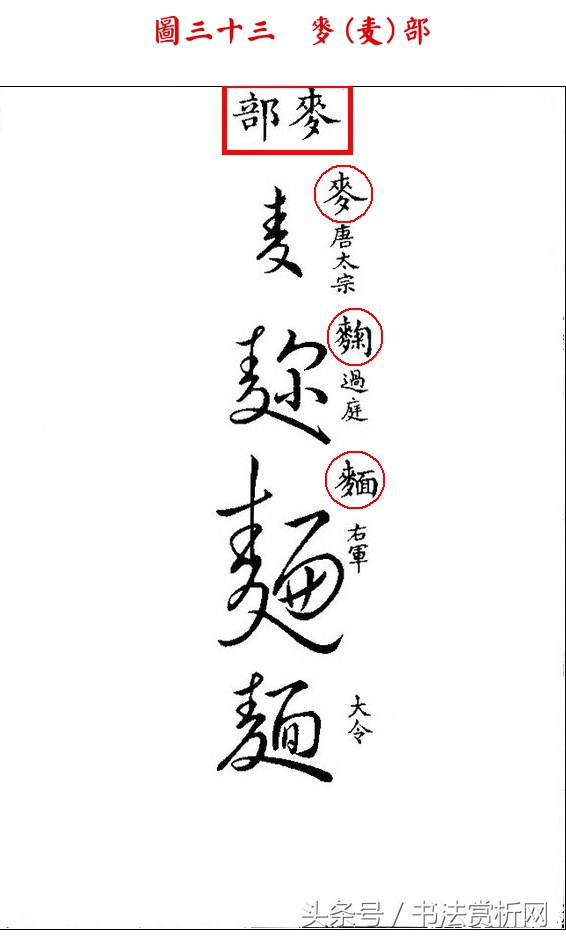 圖三十三 麥(麦)部
麥部
麥
唐太宗
麦
麴
過庭
麵
右軍
麺
大令
麺
头条号/书法赏析网